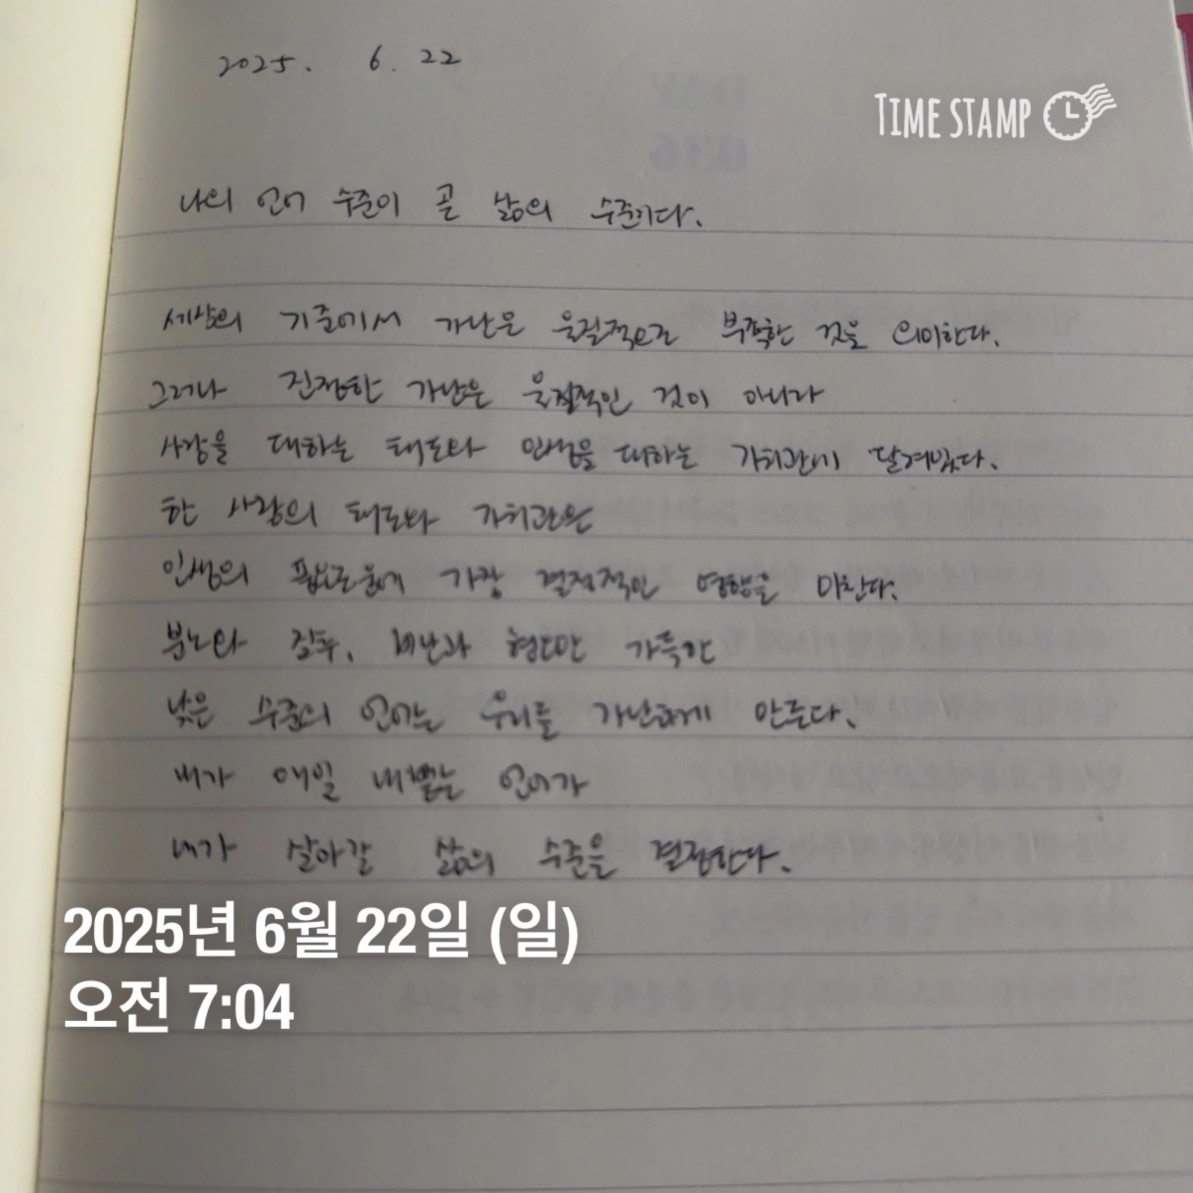 2025. 6. 22
TIME STAMP
나의 언어 수준이 곧 삶의 수준이다.
세상의 기준에서 가난은 물질적으로 부족한 것을 의미한다.
그러나 진정한 가난은 물질적인 것이 아니라
사람을 대하는 태도와 인생을 대하는 가치관에 달려있다.
한 사람의 태도와 가치관은
인생의 풍요로움에 가장 결정적인 영향을 미친다.
분노와 질투, 비난과 혐오만 가득한
낮은 수준의 언어는 우리를 가난하게 만든다.
내가 매일 내뱉는 언어가
내가 살아갈 삶의 수준을 결정한다.
2025년 6월 22일 (일)
오전 7:04